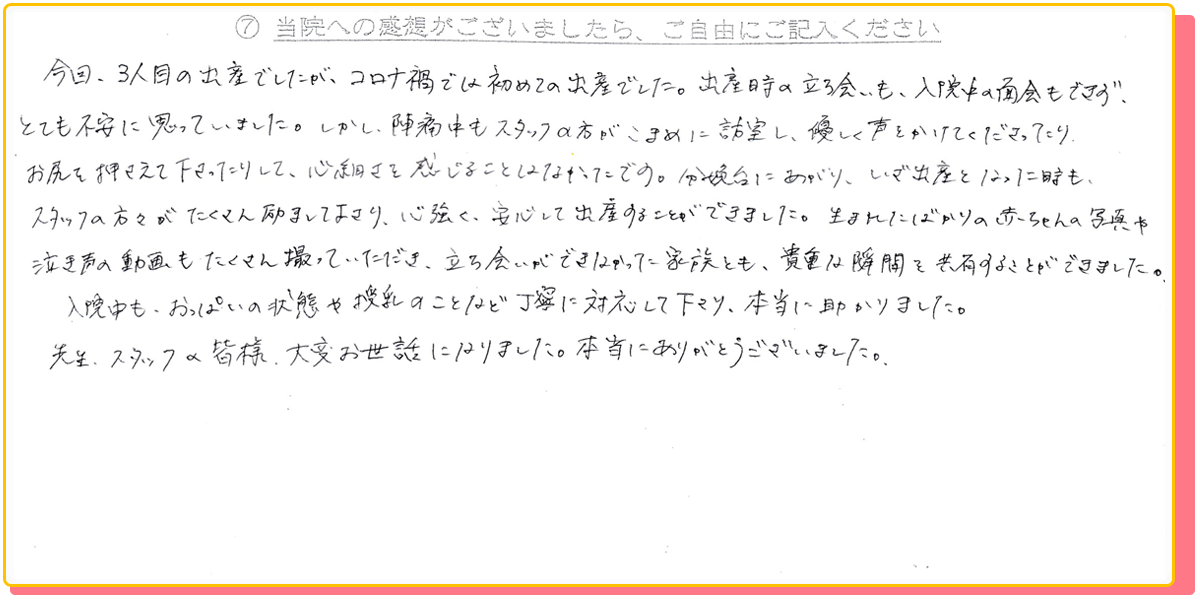 ⑦ 当院への感想がございましたら、ご自由にご記入ください
今回、3人目の出産でしたが、コロナ禍では初めての出産でした。出産時の立ち会いも、入院中の面会もできず、
とても不安に思っていました。しかし、陣痛中もスタッフの方がこまめに訪室し、優しく声をかけてくださったり、
お尻を押さえて下さったりして、心細さを感じることはなかったです。分娩台にあがり、いざ出産となった時も、
スタッフの方々がたくさん励まして下さり、心強く、安心して出産することができました。生まれたばかりの赤ちゃんの写真や
泣き声の動画もたくさん撮っていただき、立ち会いができなかった家族とも、貴重な瞬間を共有することができました。
入院中も、おっぱいの状態や授乳のことなど丁寧に対応して下さり、本当に助かりました。
先生、スタッフの皆様、大変お世話になりました。本当にありがとうございました。